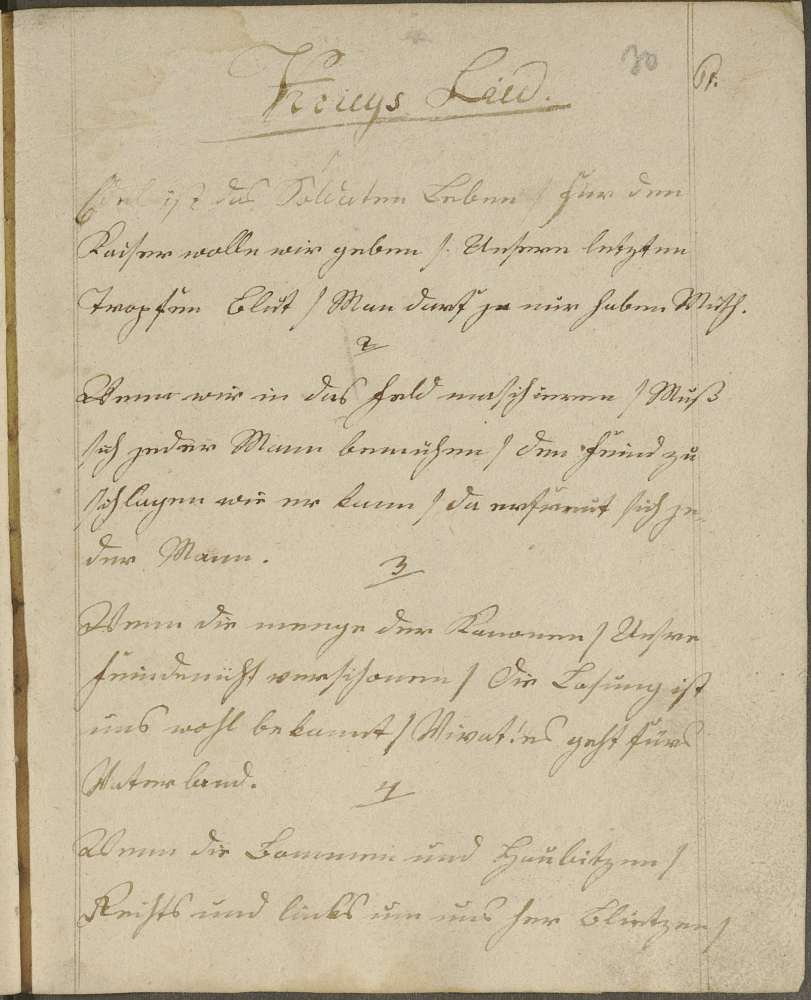 Kriegs Lied.
30
Edel ist das Soldaten Leben / für den
Kaiser wolle wir geben /. Unsern letzten
Tropfen Blut / Man darf ja nur haben Muth.
2
Wenn wir in das Feld maschieren / Muß
sich jeder Mann bemühen / den Feind zu
schlagen wie er kann / da erfreut sich je„
der Mann.
3
Wenn die menge der Kanonen / Unsre
Feinde nicht verschonen / Die Losung ist
uns wohl bekannt / Vivat! es geht fürs
Vaterland.
4
Wenn die Bommen und Haubitzen /
Rechts und links um uns her Blietzen /